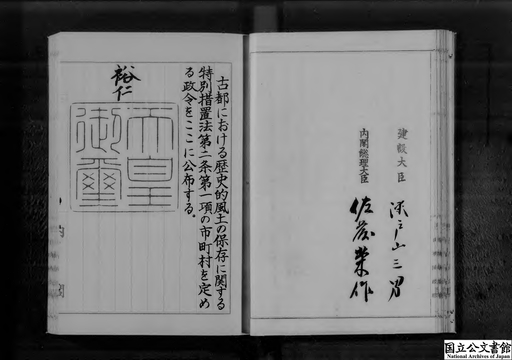 古都における歴史的風土の保存に関する
特別措置法第二条第一項の市町村を定め
る政令をここに公布する。
裕仁
天皇
御璽
建設大臣 瀬戸山三男
内閣総理大臣 佐藤榮作
国立公文書館
National Archives of Japan